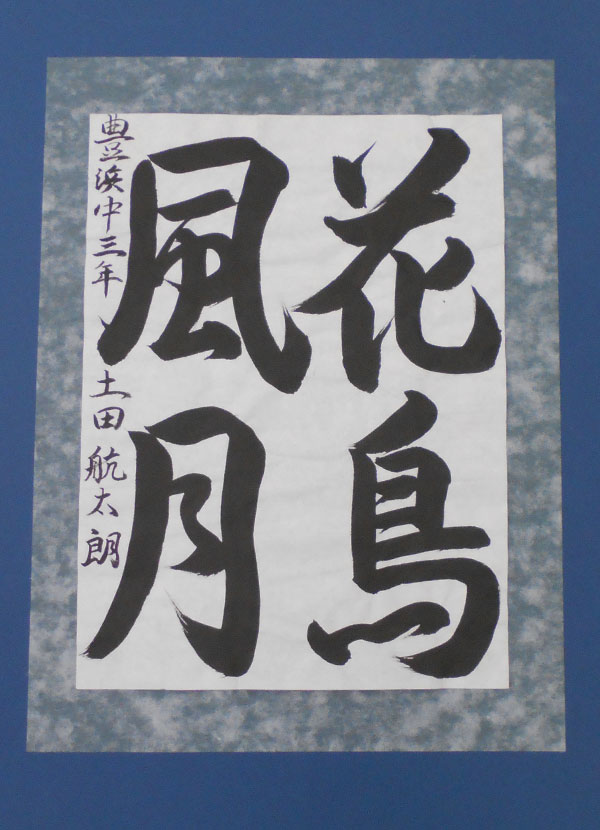 花鳥
風月
豊浜中三年 土田航太朗